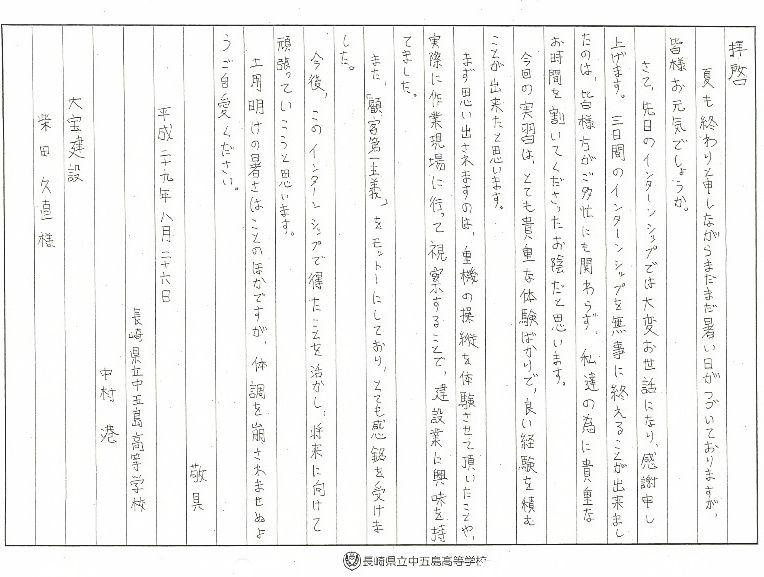 拝啓
夏も終わりと申しながらまだまだ暑い日がつづいておりますが、
皆様お元気でしょうか。
さて、先日のインターンシップでは大変お世話になり、感謝申し
上げます。三日間のインターンシップを無事に終えることが出来まし
たのは、皆様方がご多忙にも関わらず、私達の為に貴重な
お時間を割いてくださったお陰だと思います。
今回の実習は、とても貴重な体験ばかりで、良い経験を積む
ことが出来たと思います。
まず思い出されますのは、重機の操縦を体験させて頂いたことや、
実際に作業現場に行って視察することで、建設業に興味を持
てました。
また、「顧客第一主義」をモットーにしており、とても感銘を受けま
した。
今後、このインターンシップで得たことを活かし、将来に向けて
頑張っていこうと思います。
土用明けの暑さはことのほかですが、体調を崩されませぬよ
うご自愛ください。
敬具
平成二十九年八月二十六日
長崎県立中五島高等学校
中村 港
大宝建設
柴田 久直様
長崎県立中五島高等学校